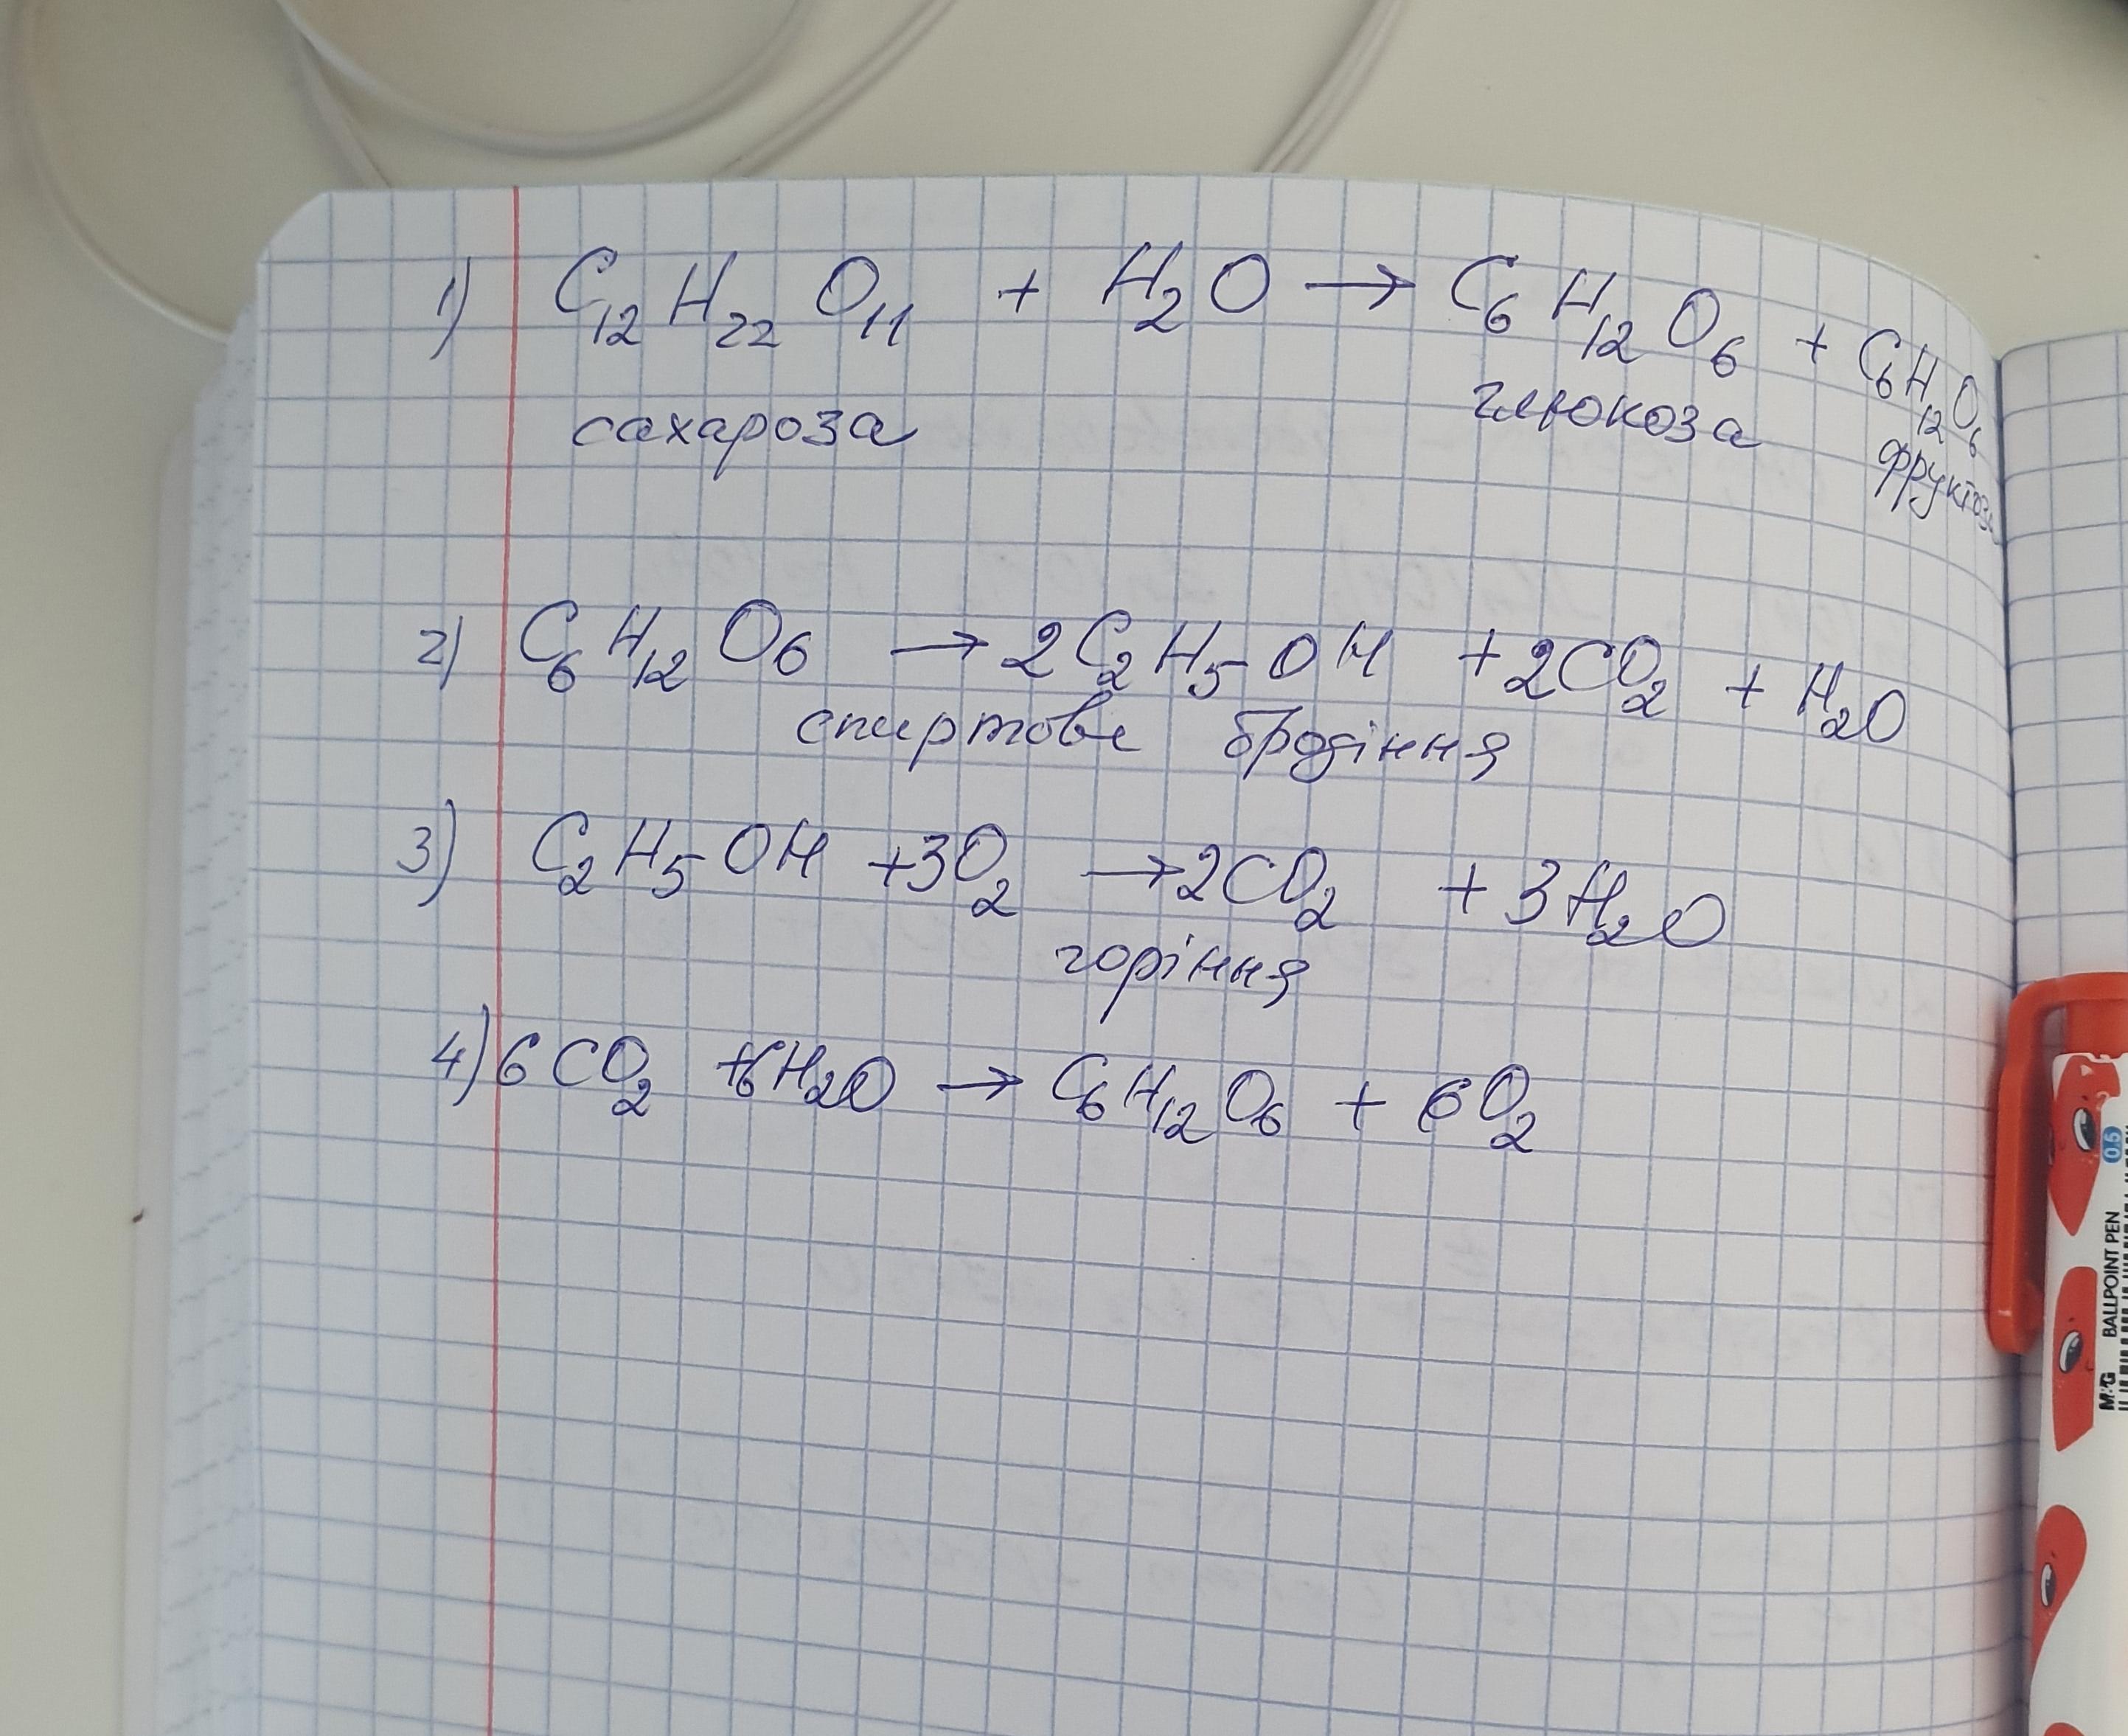 1) C₁₂H₂₂O₁₁ + H₂O → C₆H₁₂O₆ + C₆H₁₂O₆
сахароза глюкоза фруктоза
2) C₆H₁₂O₆ → 2C₂H₅OH + 2CO₂ + H₂O
спиртове бродіння
3) C₂H₅OH + 3O₂ → 2CO₂ + 3H₂O
горіння
4) 6CO₂ + 6H₂O → C₆H₁₂O₆ + 6O₂
M&G BALLPOINT PEN 0.5